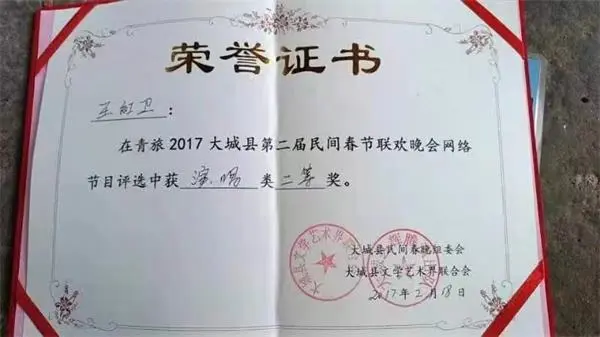 荣誉证书
王红卫：
在青旅2017大城县第二届民间春节联欢晚会网络
节目评选中获 演唱 类 二等 奖。
大城县民间春晚组委会
大城县文学艺术界联合会
2017年2月18日
大城县文学艺术界联合会